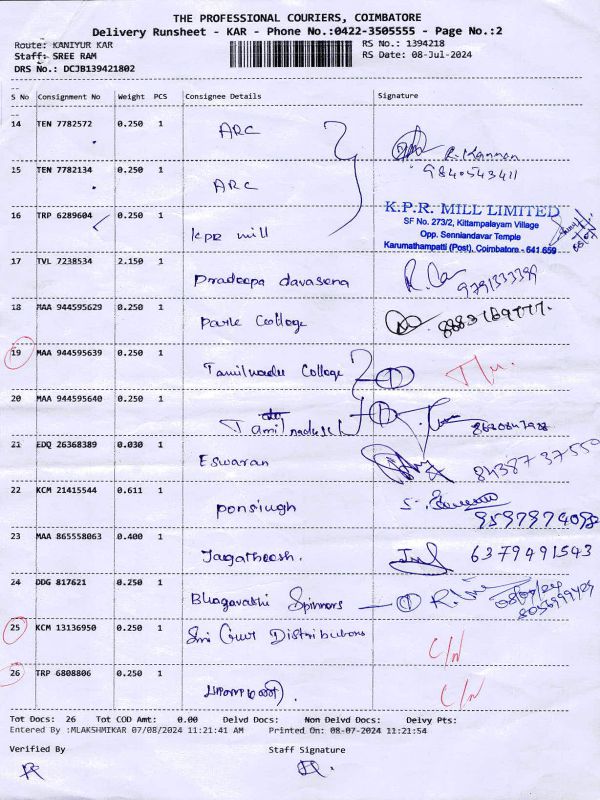 THE PROFESSIONAL COURIERS, COIMBATORE
Delivery Runsheet - KAR - Phone No.:0422-3505555 - Page No.:2
Route: KANIYUR KAR
RS No.: 1394218
Staff: SREE RAM
RS Date: 08-Jul-2024
DRS No.: DCJB139421802
S No Consignment No Weight PCS Consignee Details Signature
14 TEN 7782572 0.250 1 ARC R. Kannan
9840543411
15 TEN 7782134 0.250 1 ARC
16 TRP 6289604 0.250 1 kpr mill
K.P.R. MILL LIMITED
SF No. 273/2, Kittampalayam Village
Opp. Senniandavar Temple
Karumathampatti (Post), Coimbatore - 641 659
17 TVL 7238534 2.150 1 Pradeepa davasena 9791333399
18 MAA 944595629 0.250 1 Park College
19 MAA 944595639 0.250 1 Tamilnadu College 1
20 MAA 944595640 0.250 1 Tamilnadu
21 EDQ 26368389 0.030 1 Eswaran 8438737550
22 KCM 21415544 0.611 1 ponsingh
23 MAA 865558063 0.400 1 Jagatheesh. 6379491543
24 DDG 817621 0.250 1 Bhagavathi Spinners 1
25 KCM 13136950 0.250 1 Sri Guru Distributions C/N
26 TRP 6808806 0.250 1 C/N
Tot Docs: 26 Tot COD Amt: 0.00 Delvd Docs: Non Delvd Docs: Delvy Pts:
Entered By :MLAKSHMIKAR 07/08/2024 11:21:41 AM Printed On: 08-07-2024 11:21:54
Verified By Staff Signature